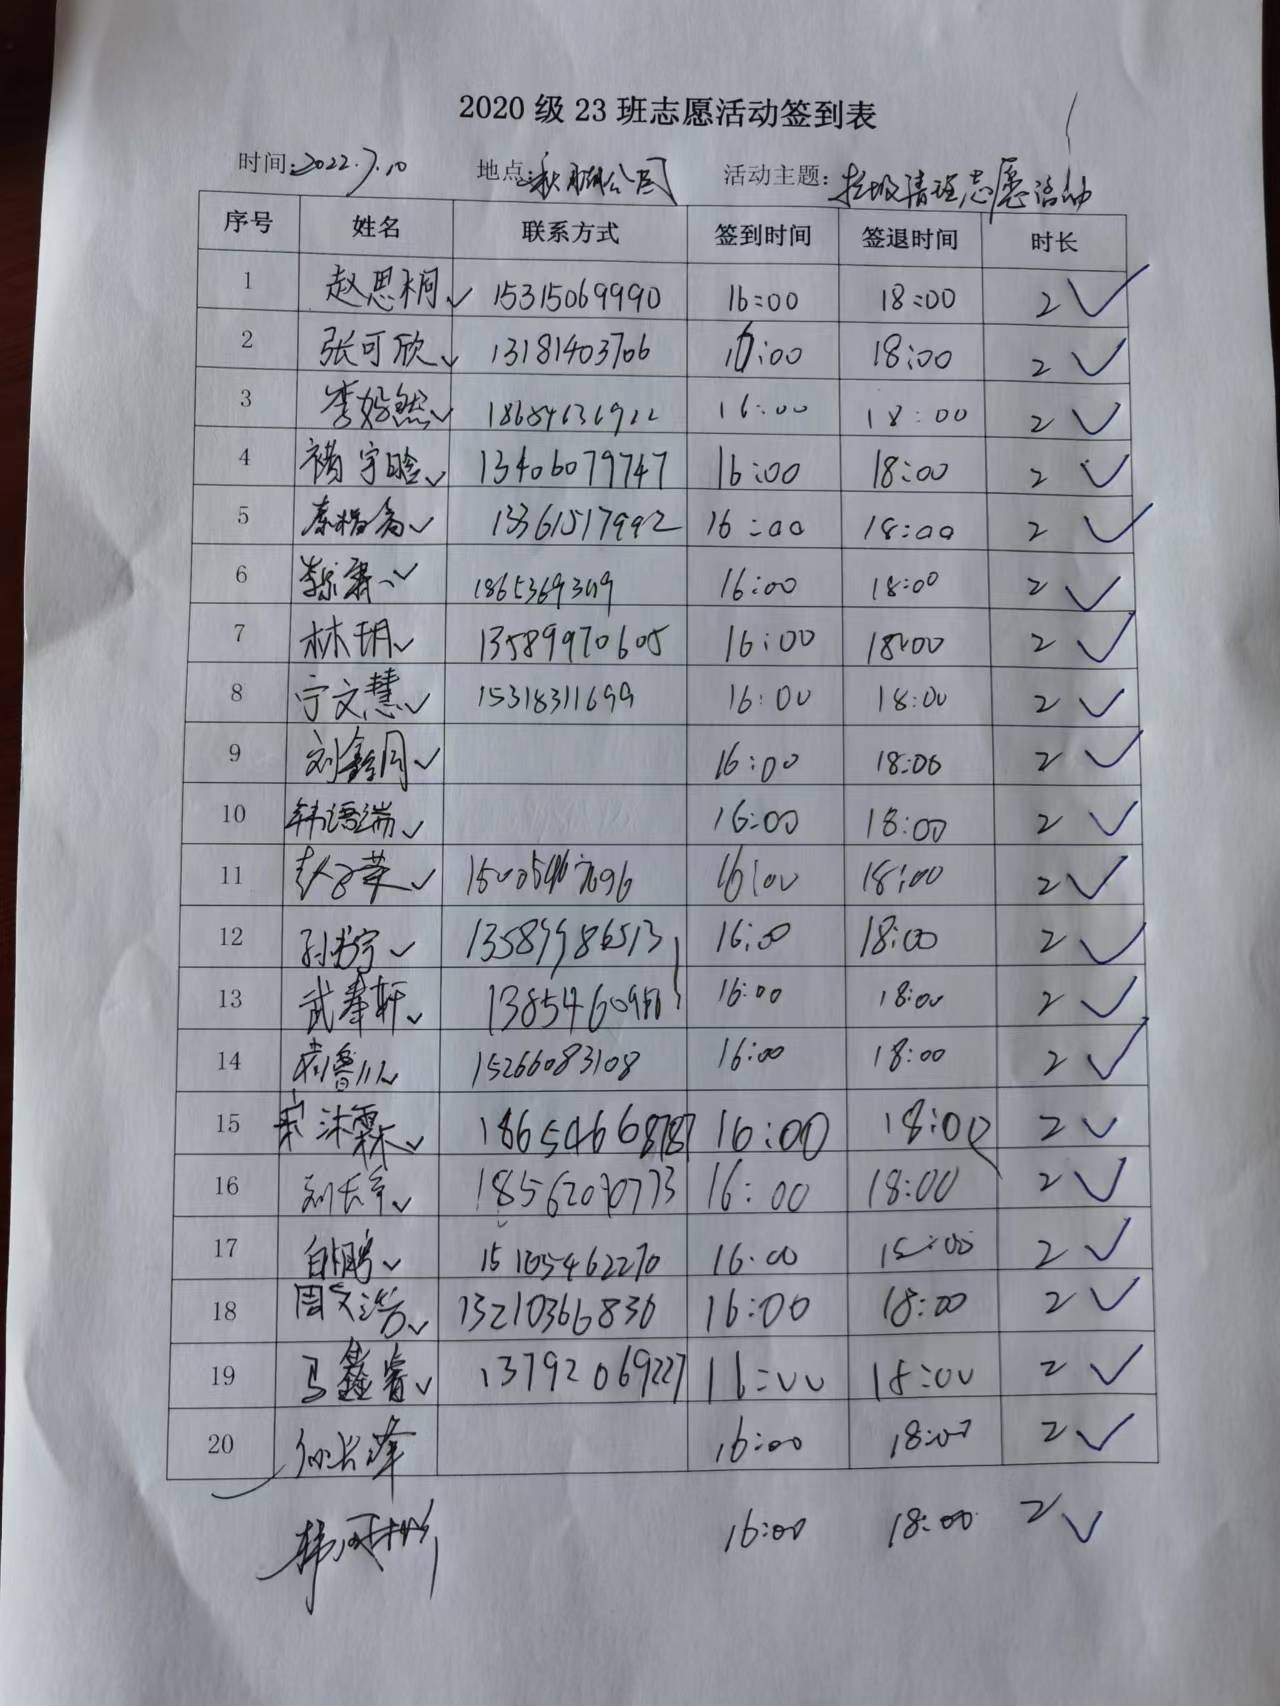 2020 级 23 班志愿活动签到表
时间:2022.7.10 地点: 公园 活动主题: 垃圾清理志愿活动
序号 姓名 联系方式 签到时间 签退时间 时长
1 赵思桐 15315069990 16:00 18:00 2
2 张可欣 13181403706 16:00 18:00 2
3 李如然 18684636922 16:00 18:00 2
4 褚宇晗 13406079747 16:00 18:00 2
5 13361517992 16:00 18:00 2
6 16:00 18:00 2
7 林玥 13589970605 16:00 18:00 2
8 宁文慧 15318311699 16:00 18:00 2
9 刘鑫同 16:00 18:00 2
10 韩语端 16:00 18:00 2
11 16:00 18:00 2
12 13589986513 16:00 18:00 2
13 16:00 18:00 2
14 15266083108 16:00 18:00 2
15 沐霖 18654668787 16:00 18:00 2
16 18562070773 16:00 18:00 2
17 15165462270 16:00 18:00 2
18 周文浩 13210366836 16:00 18:00 2
19 马鑫睿 13792069227 16:00 18:00 2
20 16:00 18:00 2
16:00 18:00 2